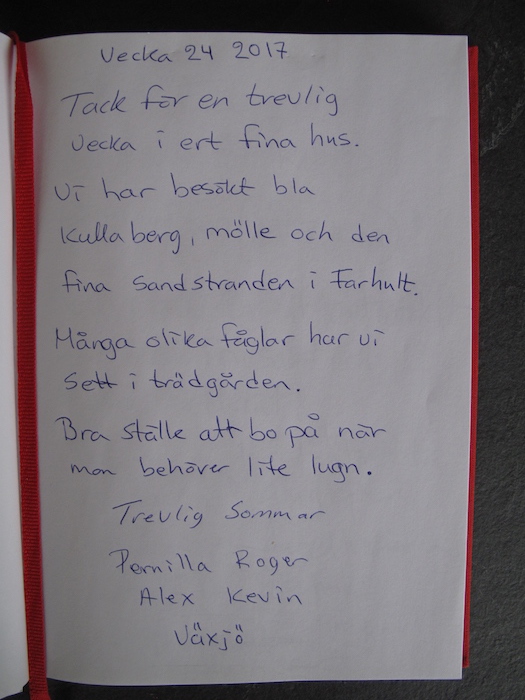 Vecka 24 2017
Tack för en trevlig
vecka i ert fina hus.
Vi har besökt bla
Kullaberg, mölle och den
fina sandstranden i Farhult.
Många olika fåglar har vi
sett i trädgården.
Bra ställe att bo på när
man behöver lite lugn.
Trevlig Sommar
Pernilla Roger
Alex Kevin
Växjö